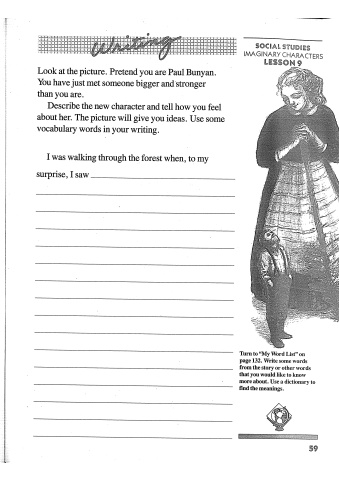 Writing
SOCIAL STUDIES
IMAGINARY CHARACTERS
LESSON 9
Look at the picture. Pretend you are Paul Bunyan.
You have just met someone bigger and stronger
than you are.
Describe the new character and tell how you feel
about her. The picture will give you ideas. Use some
vocabulary words in your writing.
I was walking through the forest when, to my
surprise, I saw
Turn to "My Word List" on
page 132. Write some words
from the story or other words
that you would like to know
more about. Use a dictionary to
find the meanings.
59